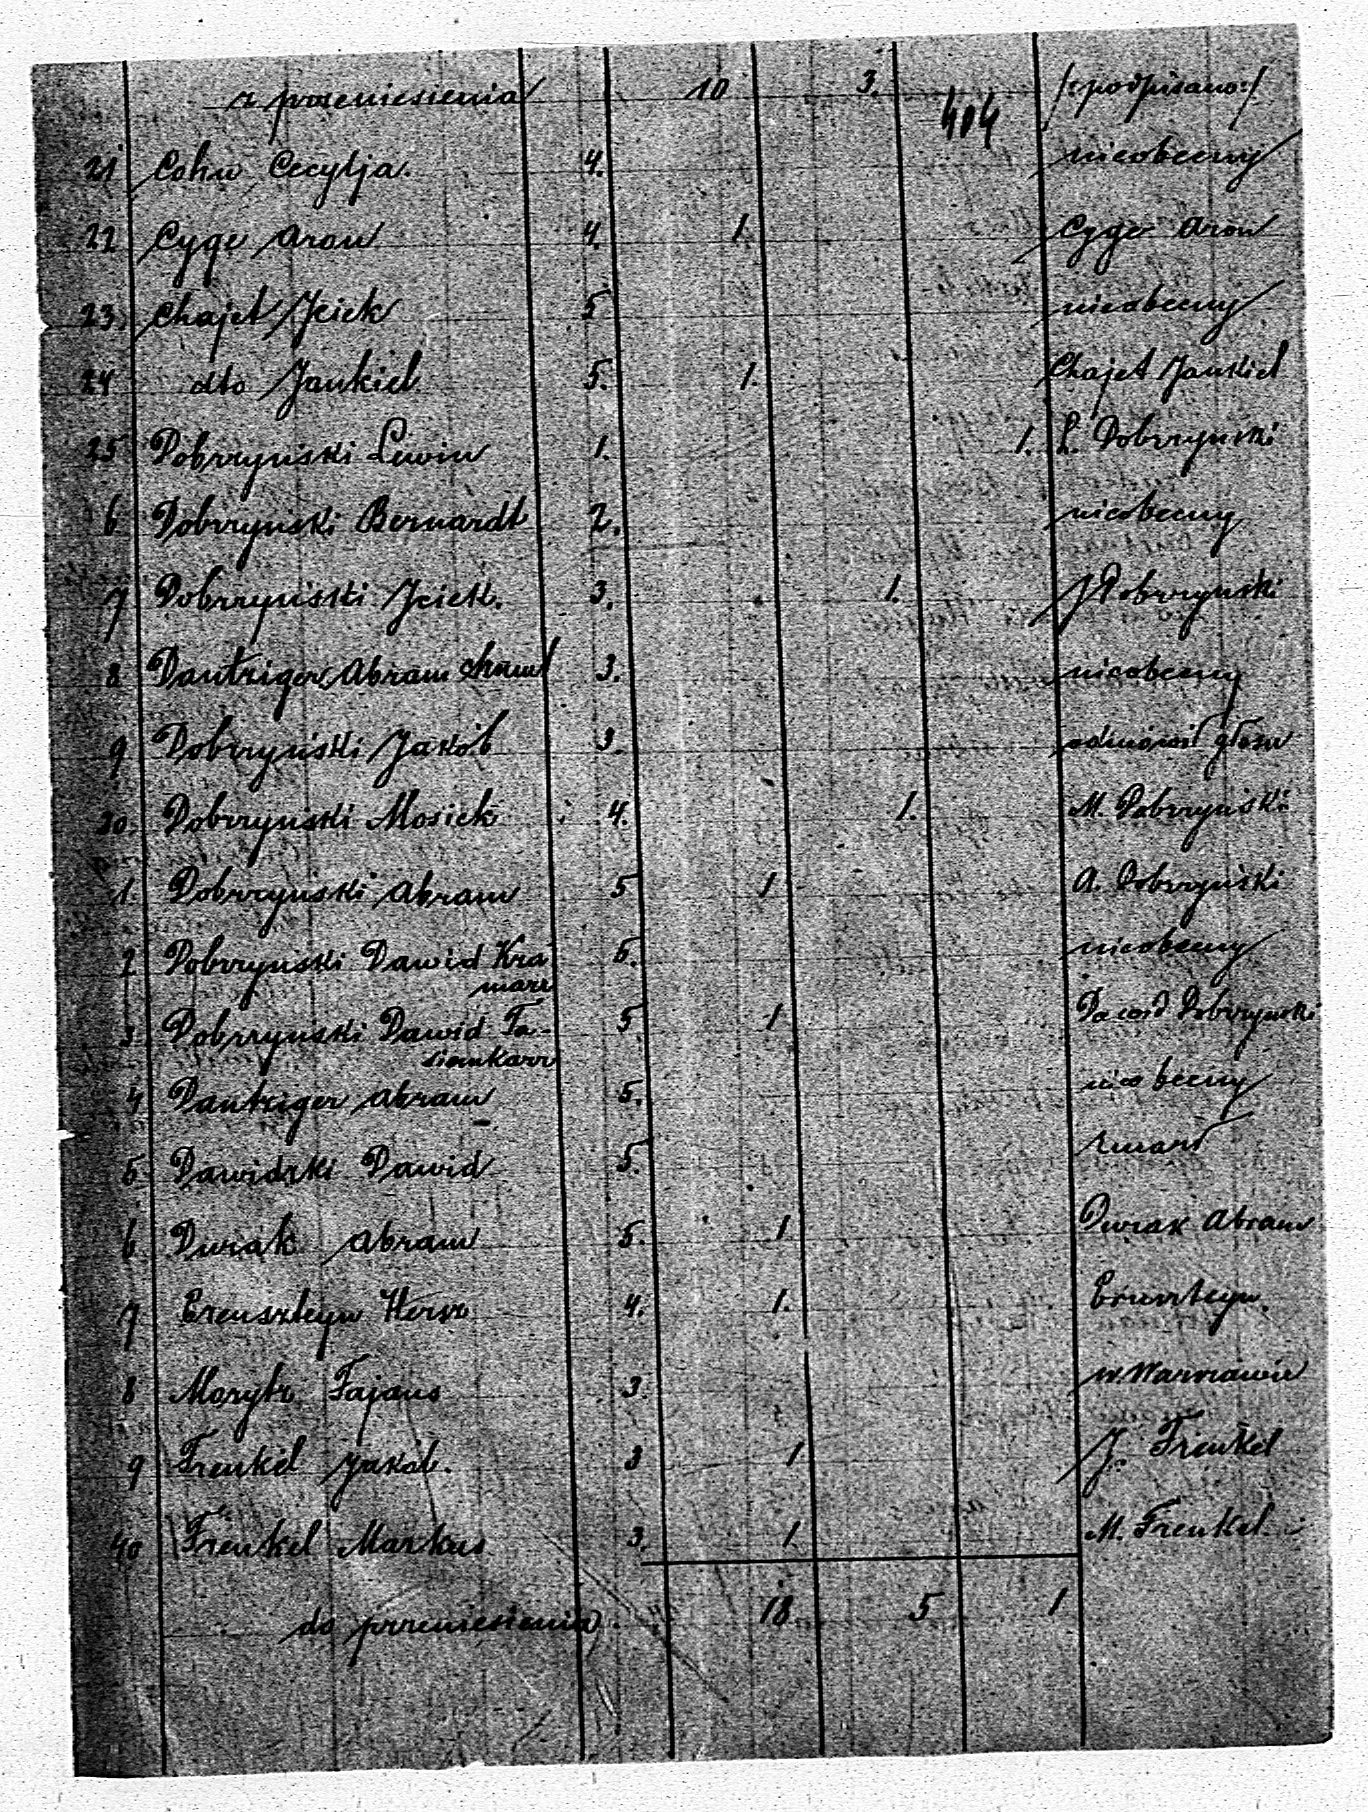 z przeniesienia 10 3. /:podpisano:/
404
21 Cohn Cecylja. 4. nieobecny
22 Cyge Aron 4. 1. Cyge Aron
23 Chajet Jcick 5 nieobecny
24 dto Jankiel 5. 1. Chajet Jankiel
25 Dobrzynski Lewin 1. 1. L. Dobrzynski
6 Dobrzynski Bernardt 2. nieobecny
7 Dobrzynski Jcick. 3. 1. J Dobrzynski
8 Dantziger Abram 3. nieobecny
9 Dobrzyński Jakób 3. odmówił głosu
30 Dobrzynski Mosiek 4. 1. M. Dobrzyński
1 Dobrzynski Abram 5 1 A. Dobrzyński
2 Dobrzynski Dawid Kra 5. nieobecny
marz
3 Dobrzynski Dawid Ta- 5 1 Dawid Dobrzynski
siemkarz
4 Dantziger Abram 5. nieobecny
5 Dawidzki Dawid 5. zmarł
6 Durak Abram 5. 1 Durak Abram
7 Erenszteyn Hersz 4. 1. Erenszteyn.
8 Morytz Fajans 3. w Warszawie
9 Frenkel Jakób. 3 1 J. Frenkel
40 Frenkel Markus 3. 1. M. Frenkel.
do przeniesienia 18 5 1